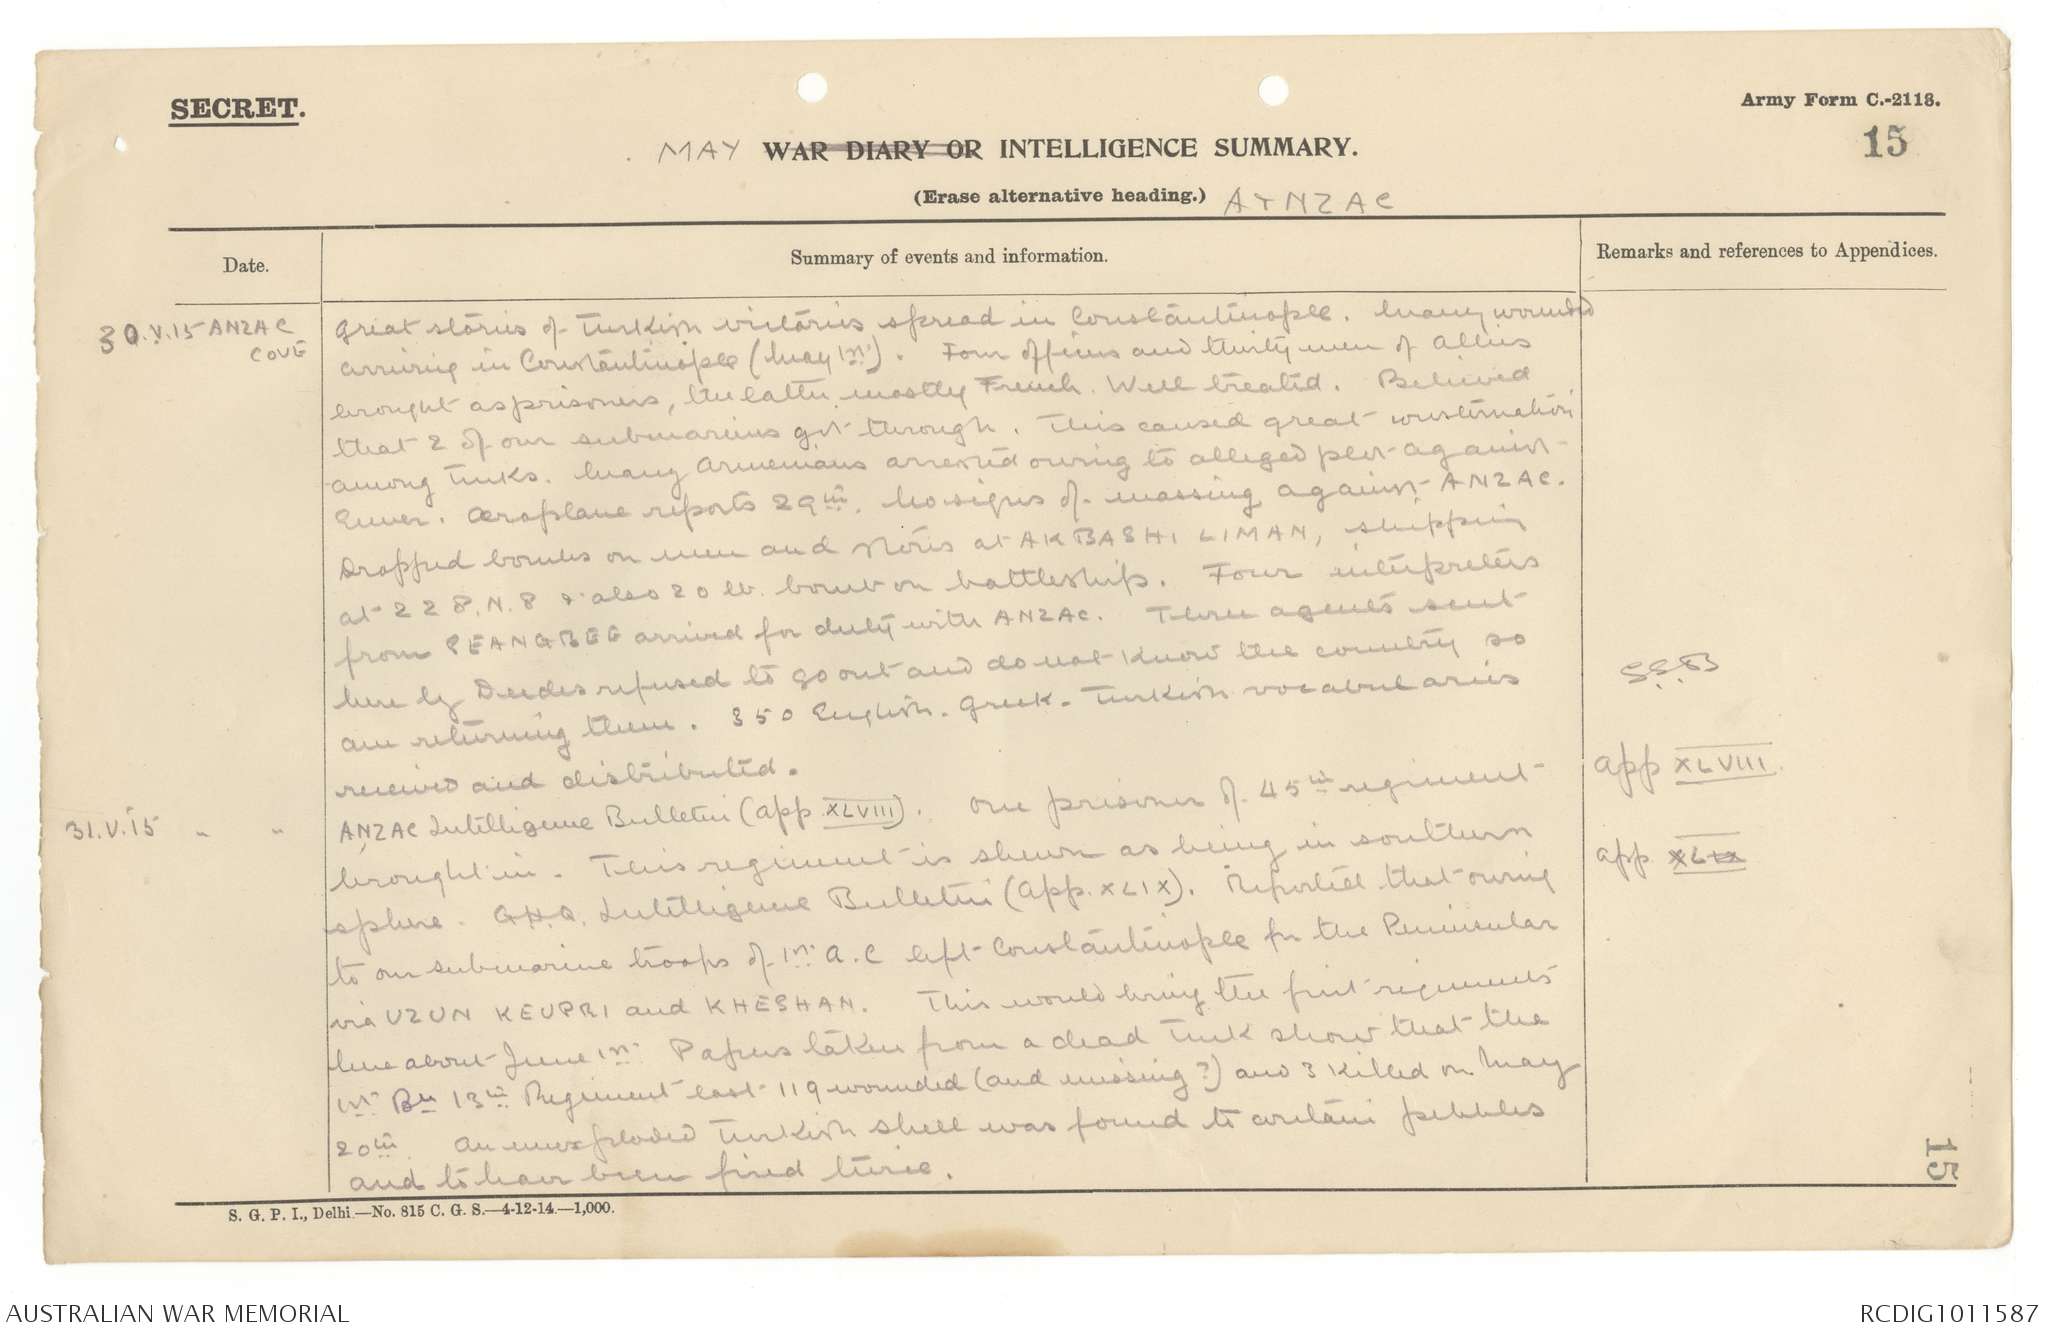 SECRET.
Army Form C.-2118.
15
MAY WAR DIARY OR INTELLIGENCE SUMMARY.
(Erase alternative heading.) A & NZ AC
Date.
Summary of events and information.
Remarks and references to Appendices.
30.V.15 ANZAC
COVE
Great stories of Turkish victories spread in Constantinople. Many wounded
arriving in Constantinople (May 1st). Four officers and thirty men of Allies
brought as prisoners, the latter mostly French. Well treated. Believed
that 2 of our submarines got through. This caused great consternation
among Turks. Many Armenians arrested owing to alleged plot against
Enver. Aeroplane reports 29th. No signs of massing against ANZAC.
Dropped bombs on men and stores at AK BASHI LIMAN, shipping
at 228.N.8 & also 20 lb. bomb on battleship. Four interpreters
from arrived for duty with ANZAC. Three agents sent
here by Deedes refused to go out and do not know the country so
am returning them. 350 English-Greek-Turkish vocabularies
received and distributed.
S.S.B
31.V.15 " "
ANZAC Intelligence Bulletin (App. XLVIII). One prisoner of 45th regiment
app XLVIII.
brought in. This regiment is shewn as being in southern
sphere. G.H.Q. Intelligence Bulletin (App. XLIX). Reported that owing
app XLIX
to our submarine troops of 1st A.C left Constantinople for the Peninsular
via UZUN KEUPRI and KHESHAN. This would bring the first regiments
here about June 1st. Papers taken from a dead Turk show that the
1st Bn 13th Regiment lost 119 wounded (and missing?) and 3 killed on May
20th. An unexploded Turkish shell was found to contain pebbles
and to have been fired twice.
15
S. G. P. I., Delhi—No. 815 C. G. S.—4-12-14.—1,000.
AUSTRALIAN WAR MEMORIAL
RCDIG1011587